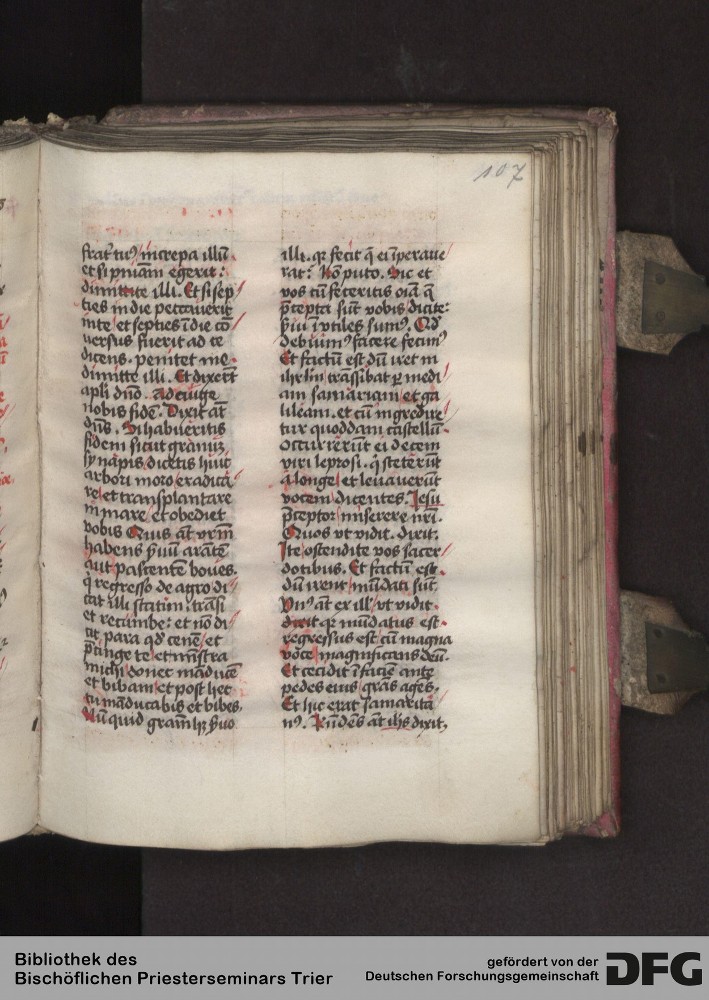 107
frat͛ tuꝰ increpa illū
et si pniam̄ egerit:
dimitte illi. Et si sep
ties in die peccauerit
in te et septies ī die cō
versus fuerit ad te
dicens. penitet me.
dimitte illi. Et dixert̄
apli dn̄o. adauge
nobis fidē. Dixit āt
dn̄s. Si habueritis
fidem sicut granū
synapis dicetis huic
arbori moro eradica
re et transplantare
in mare et obediet
vobis Quis āt vr̄m
habens ẜuū arātē
aut pascentē boues.
q̇ regresso de agro di
cat illi statim. trāsi
et recumbe: et nō di
cit para qd̓ cenē et
p̄cinge te et mīstra
michi donec māduce
et bibam et post hec
tu māducabis et bibes.
Nūquid gram̄ hꝫ ẜuo
illi. qꝛ fecit q̄ ei īperaue
rat: Nō puto. Sic et
vos cū feceritis oīa q̄
p̄cepta sūt vobis dicite:
ẜui īvtiles sumꝰ. Qd̓
debuimꝰ facere fecimꝰ
Et factū est dū iret in
ihrlm̄ trāsibat ꝑ medi
am samariam et ga
lileam. et cū ingredire
tur quoddam castellū.
occurrerūt ei decem
viri leprosi. q̇ steterūt
a longe et leuauerūt
vocem dicentes. Iesu
p̄ceptor miserere nr̄i.
Quos vt vidit. dixit.
Ite ostendite vos sacer
dotibus. Et factū est.
dū irent mūdati sūt.
Vnꝰ āt ex ill' vt vidit.
qꝛ mūdatus est.
regressus est cū magna
voce magnificans deū.
Et cecidit ī faciē ante
pedes eius grās agēs.
Et hic erat samarita
nꝰ. Rn̄dēs āt ihs̄ dixit.
Bibliothek des
Bischöflichen Priesterseminars Trier
gefördert von der
Deutschen Forschungsgemeinschaft
DFG